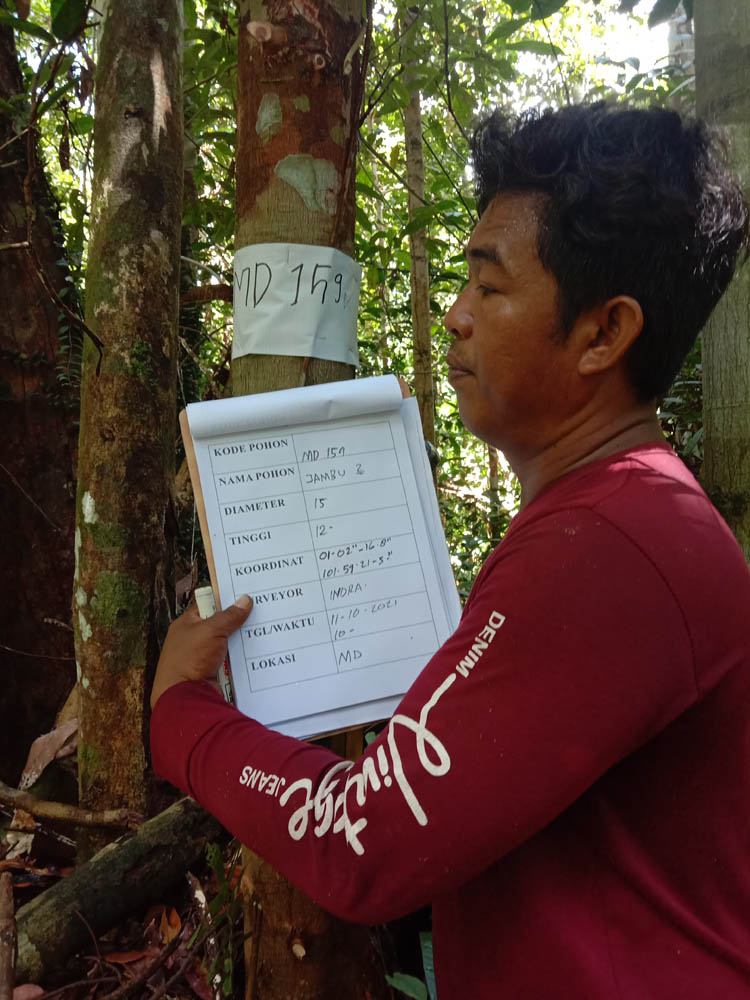 MD 159
KODE POHON MD 159
NAMA POHON JAMBU 2
DIAMETER 15
TINGGI 12-
KOORDINAT 01-02"-16.8"
101-59-21-5-"
RVEYOR INDRA.
TGL/WAKTU 11-10-2021
10-
LOKASI MD
DENIM
Vintage
JEANS